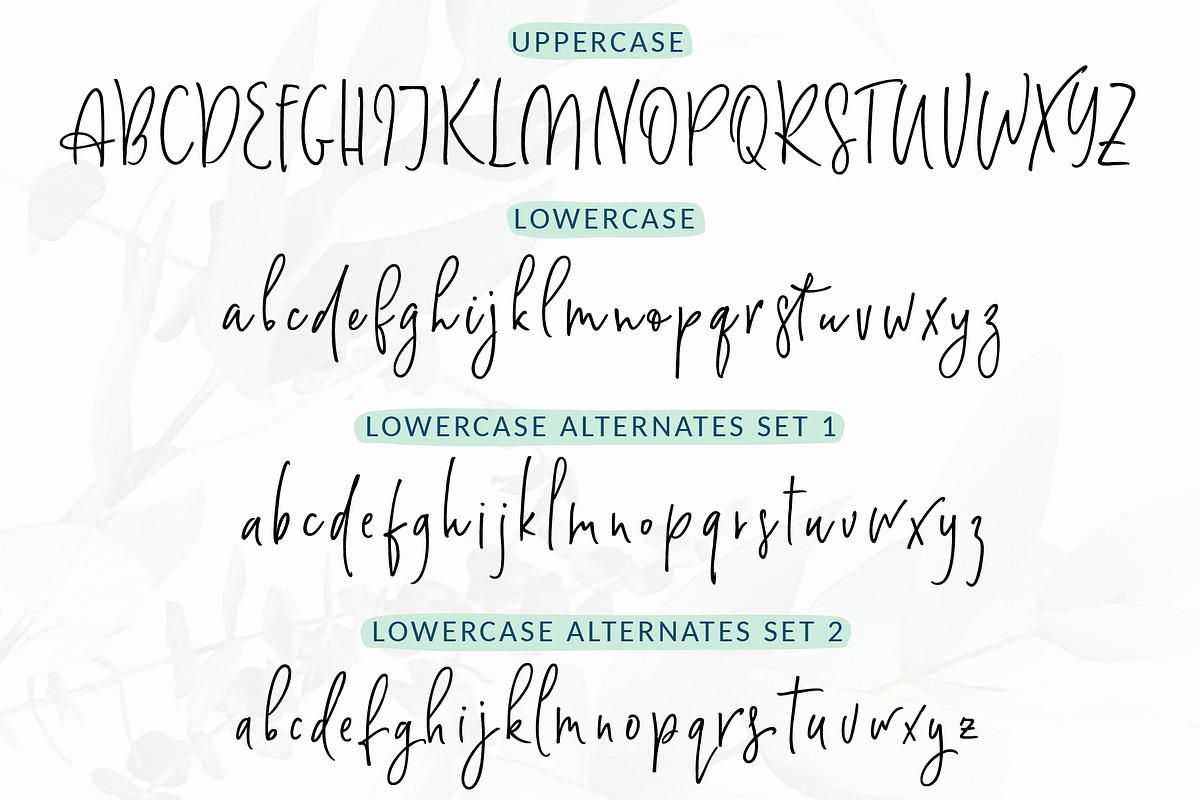 UPPERCASE
ABCDEFGHIJKLMNOPQRSTUVWXYZ
LOWERCASE
abcdefghijklmnopqrstuvwxyz
LOWERCASE ALTERNATES SET 1
abcdefghijklmnopqrstuvwxyz
LOWERCASE ALTERNATES SET 2
abcdefghijklmnopqrstuvwxyz